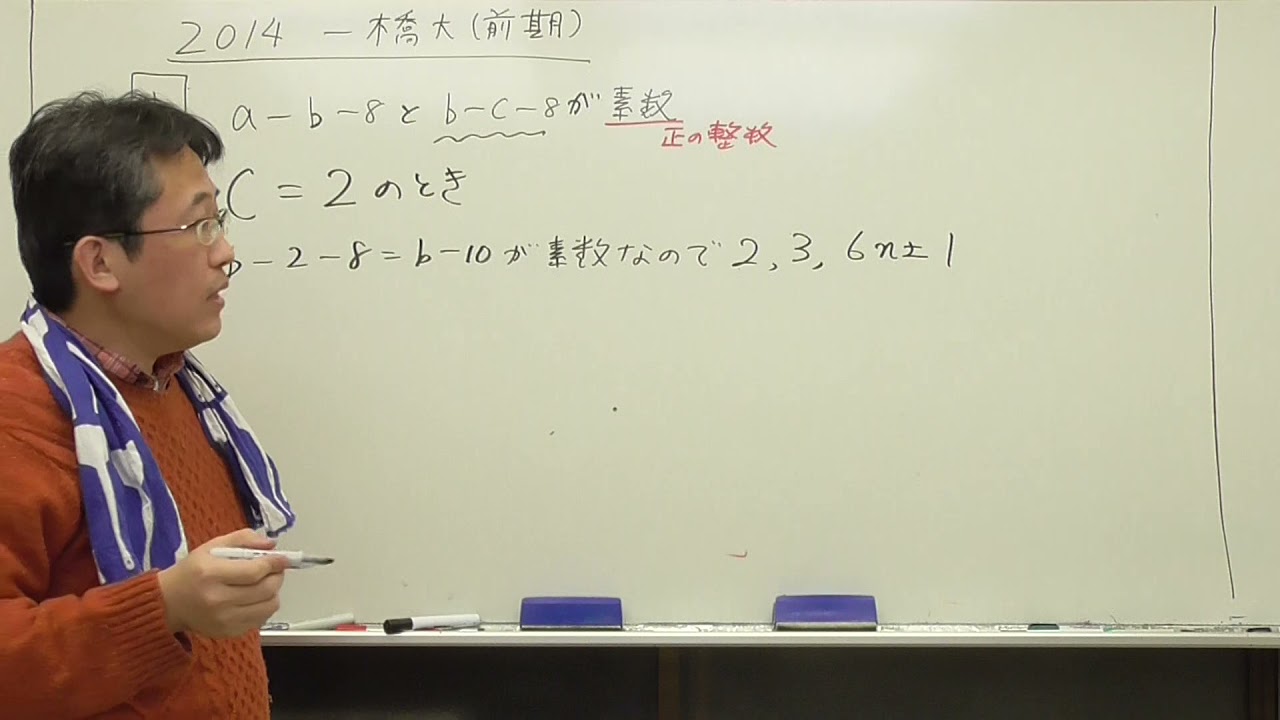 2014 一橋大(前期)
a-b-8とb-c-8が素数
正の整数
C=2のとき
b-2-8=b-10が素数なので2,3,6n±1